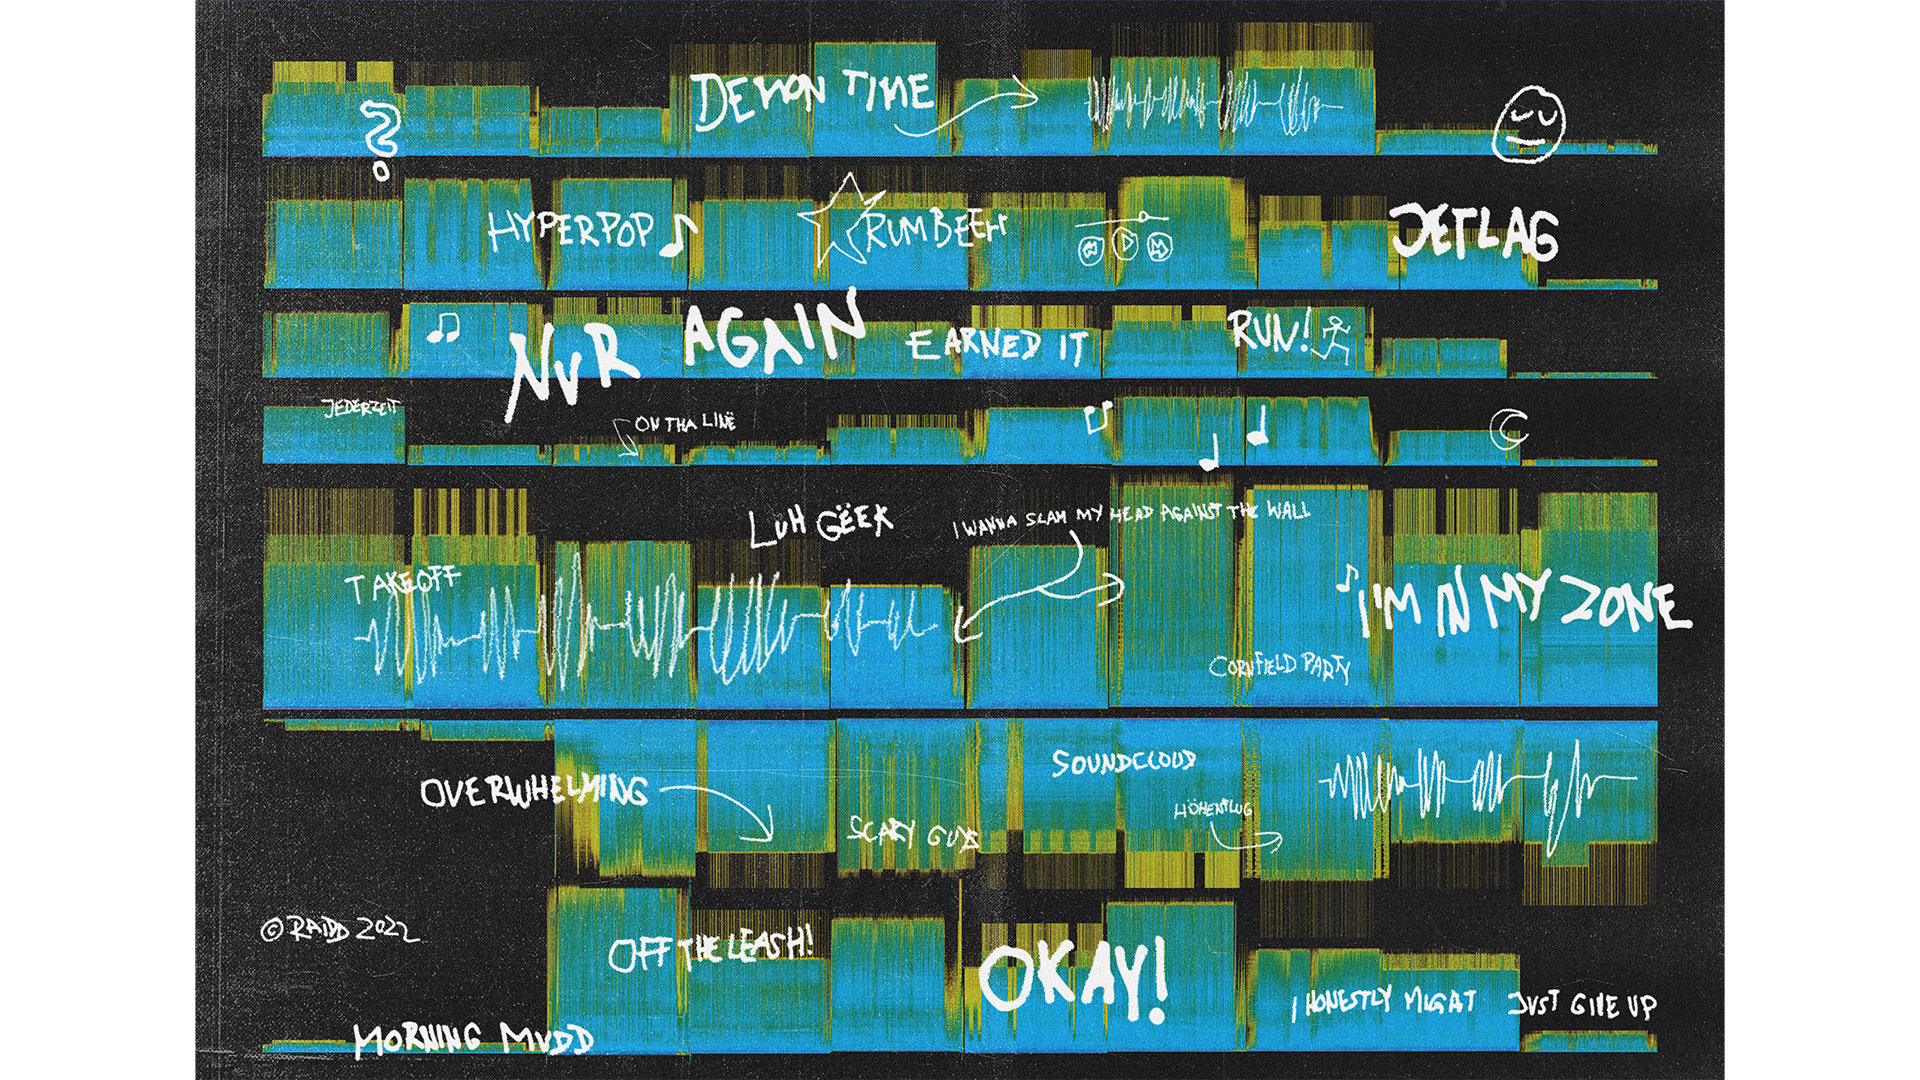 DEMON TIME
?
HYPERPOP
RUM BEEH
JETLAG
NVR AGAIN
EARNED IT
RUN!
JEDERZEIT
ON THA LINË
LUH GËEK
I WANNA SLAM MY HEAD AGAINST THE WALL
TAKEOFF
I'M IN MY ZONE
CORNFIELD PARTY
SOUNDCLOUD
OVERWHELMING
HÖHENFLUG
SCARY GUYS
© RAIDD 2022
OFF THE LEASH!
OKAY!
I HONESTLY MIGHT JUST GIVE UP
MORNING MUDD